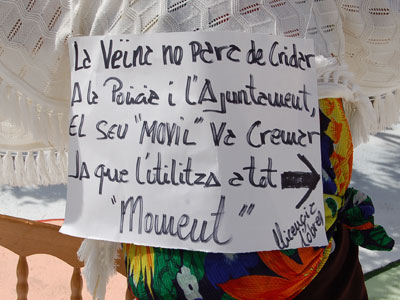 La Veïna no para de Cridar
A la Policia i l'Ajuntament,
El seu "MOVIL" Va Cremar
Ja que l'utilitza a tot
"Moment"